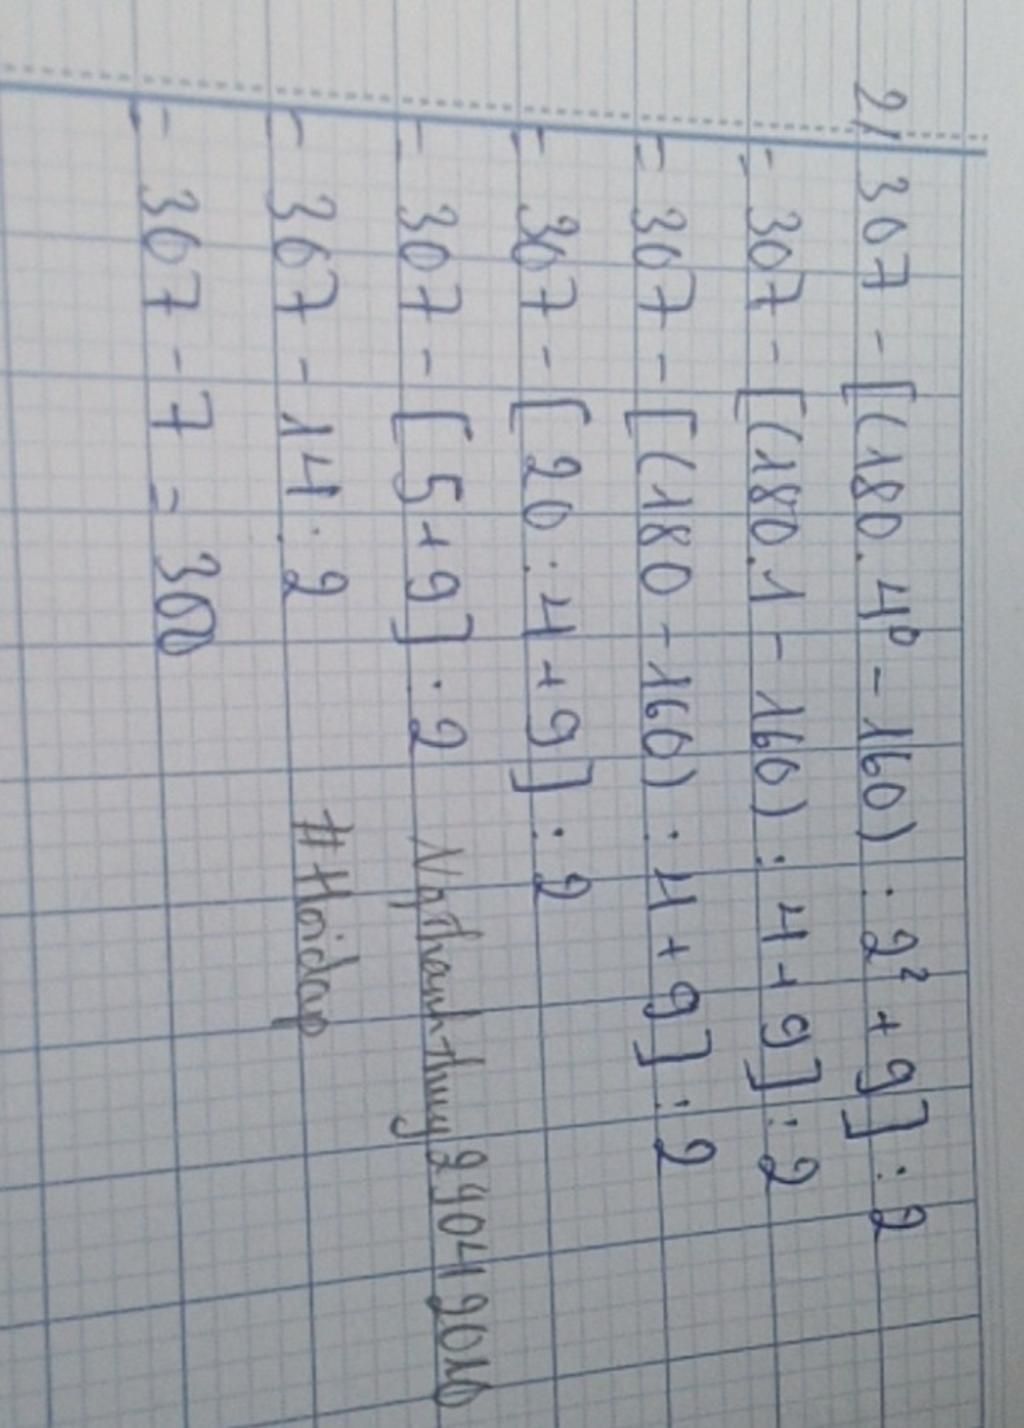 2/ 307 - [(180.4⁰ - 160) : 2² + 9] : 2
= 307 - [(180.1 - 160) : 4 + 9] : 2
= 307 - [(180 - 160) : 4 + 9] : 2
= 307 - [20 : 4 + 9] : 2
= 307 - [5 + 9] : 2
= 307 - 14 : 2
= 307 - 7 = 300
#Hoidap